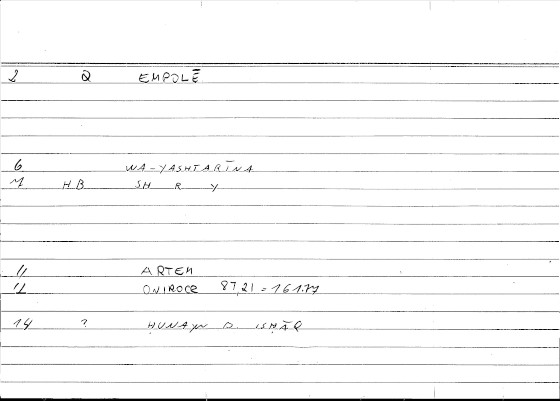 2 Q EMPOLĒ
6 WA-YASHTARĪNA
7 HB SH R Y
11 ARTEM
12 ONIROCR 87,21 = 161.17
14 ? ḤUNAYN B. ISḤĀQ